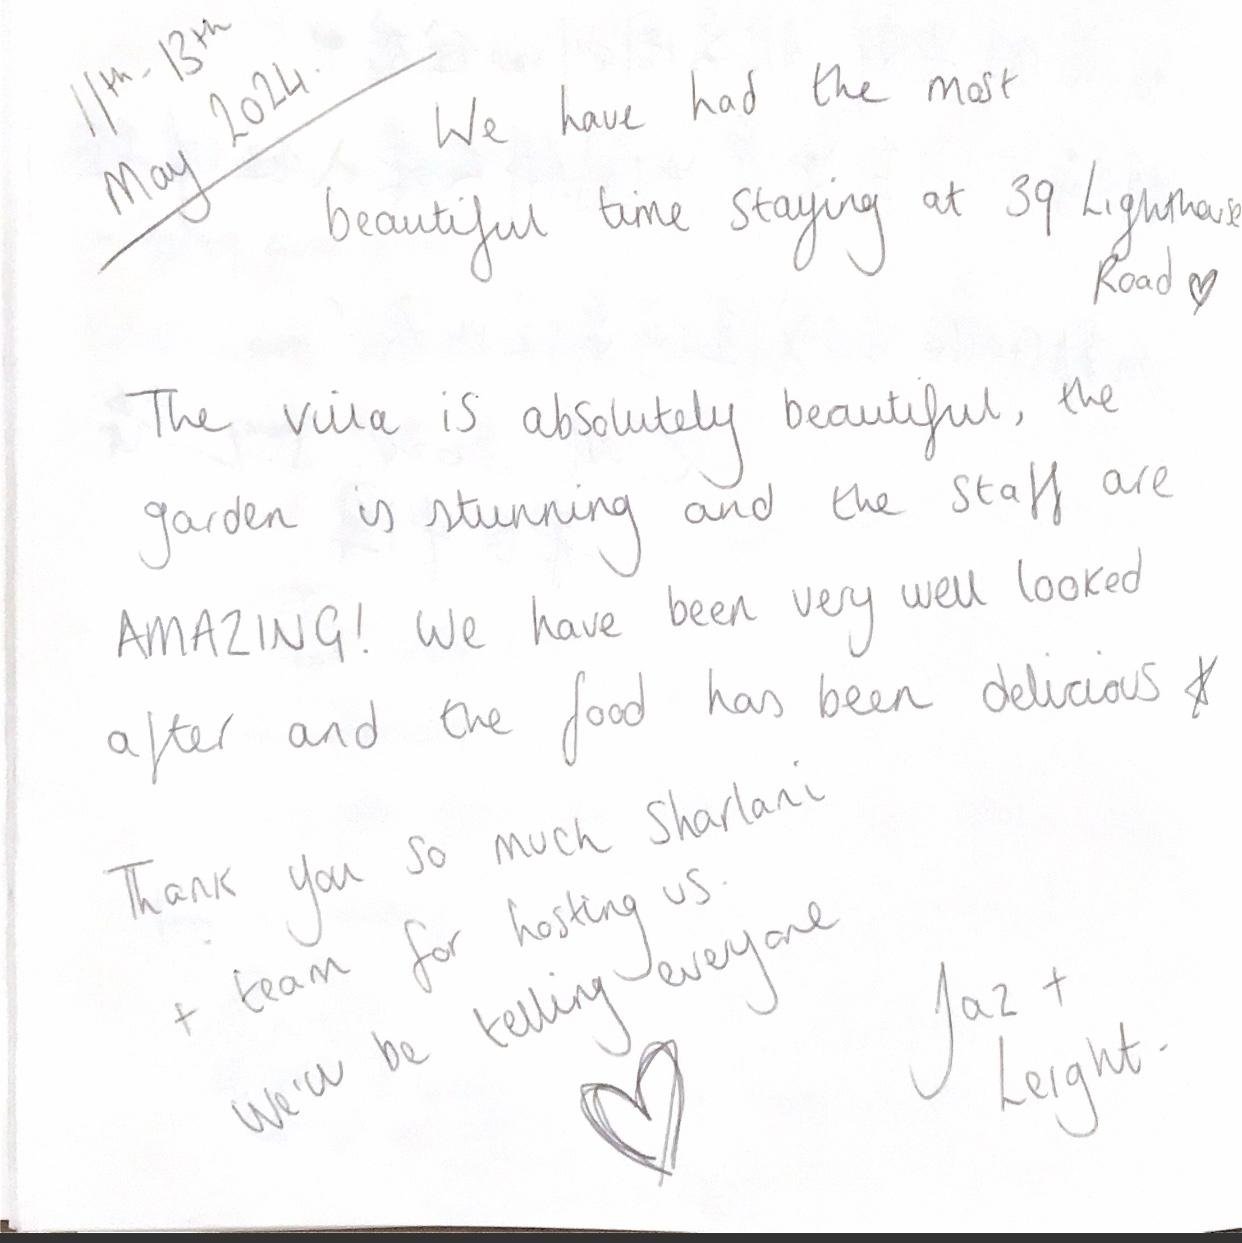 11th - 13th
May 2024.
We have had the most
beautiful time staying at 39 Lighthouse
Road ♡
The villa is absolutely beautiful, the
garden is stunning and the staff are
AMAZING! We have been very well looked
after and the food has been delicious
Thank you so much Sharlani
+ team for hosting us.
We'll be telling everyone
Jaz +
Leight.